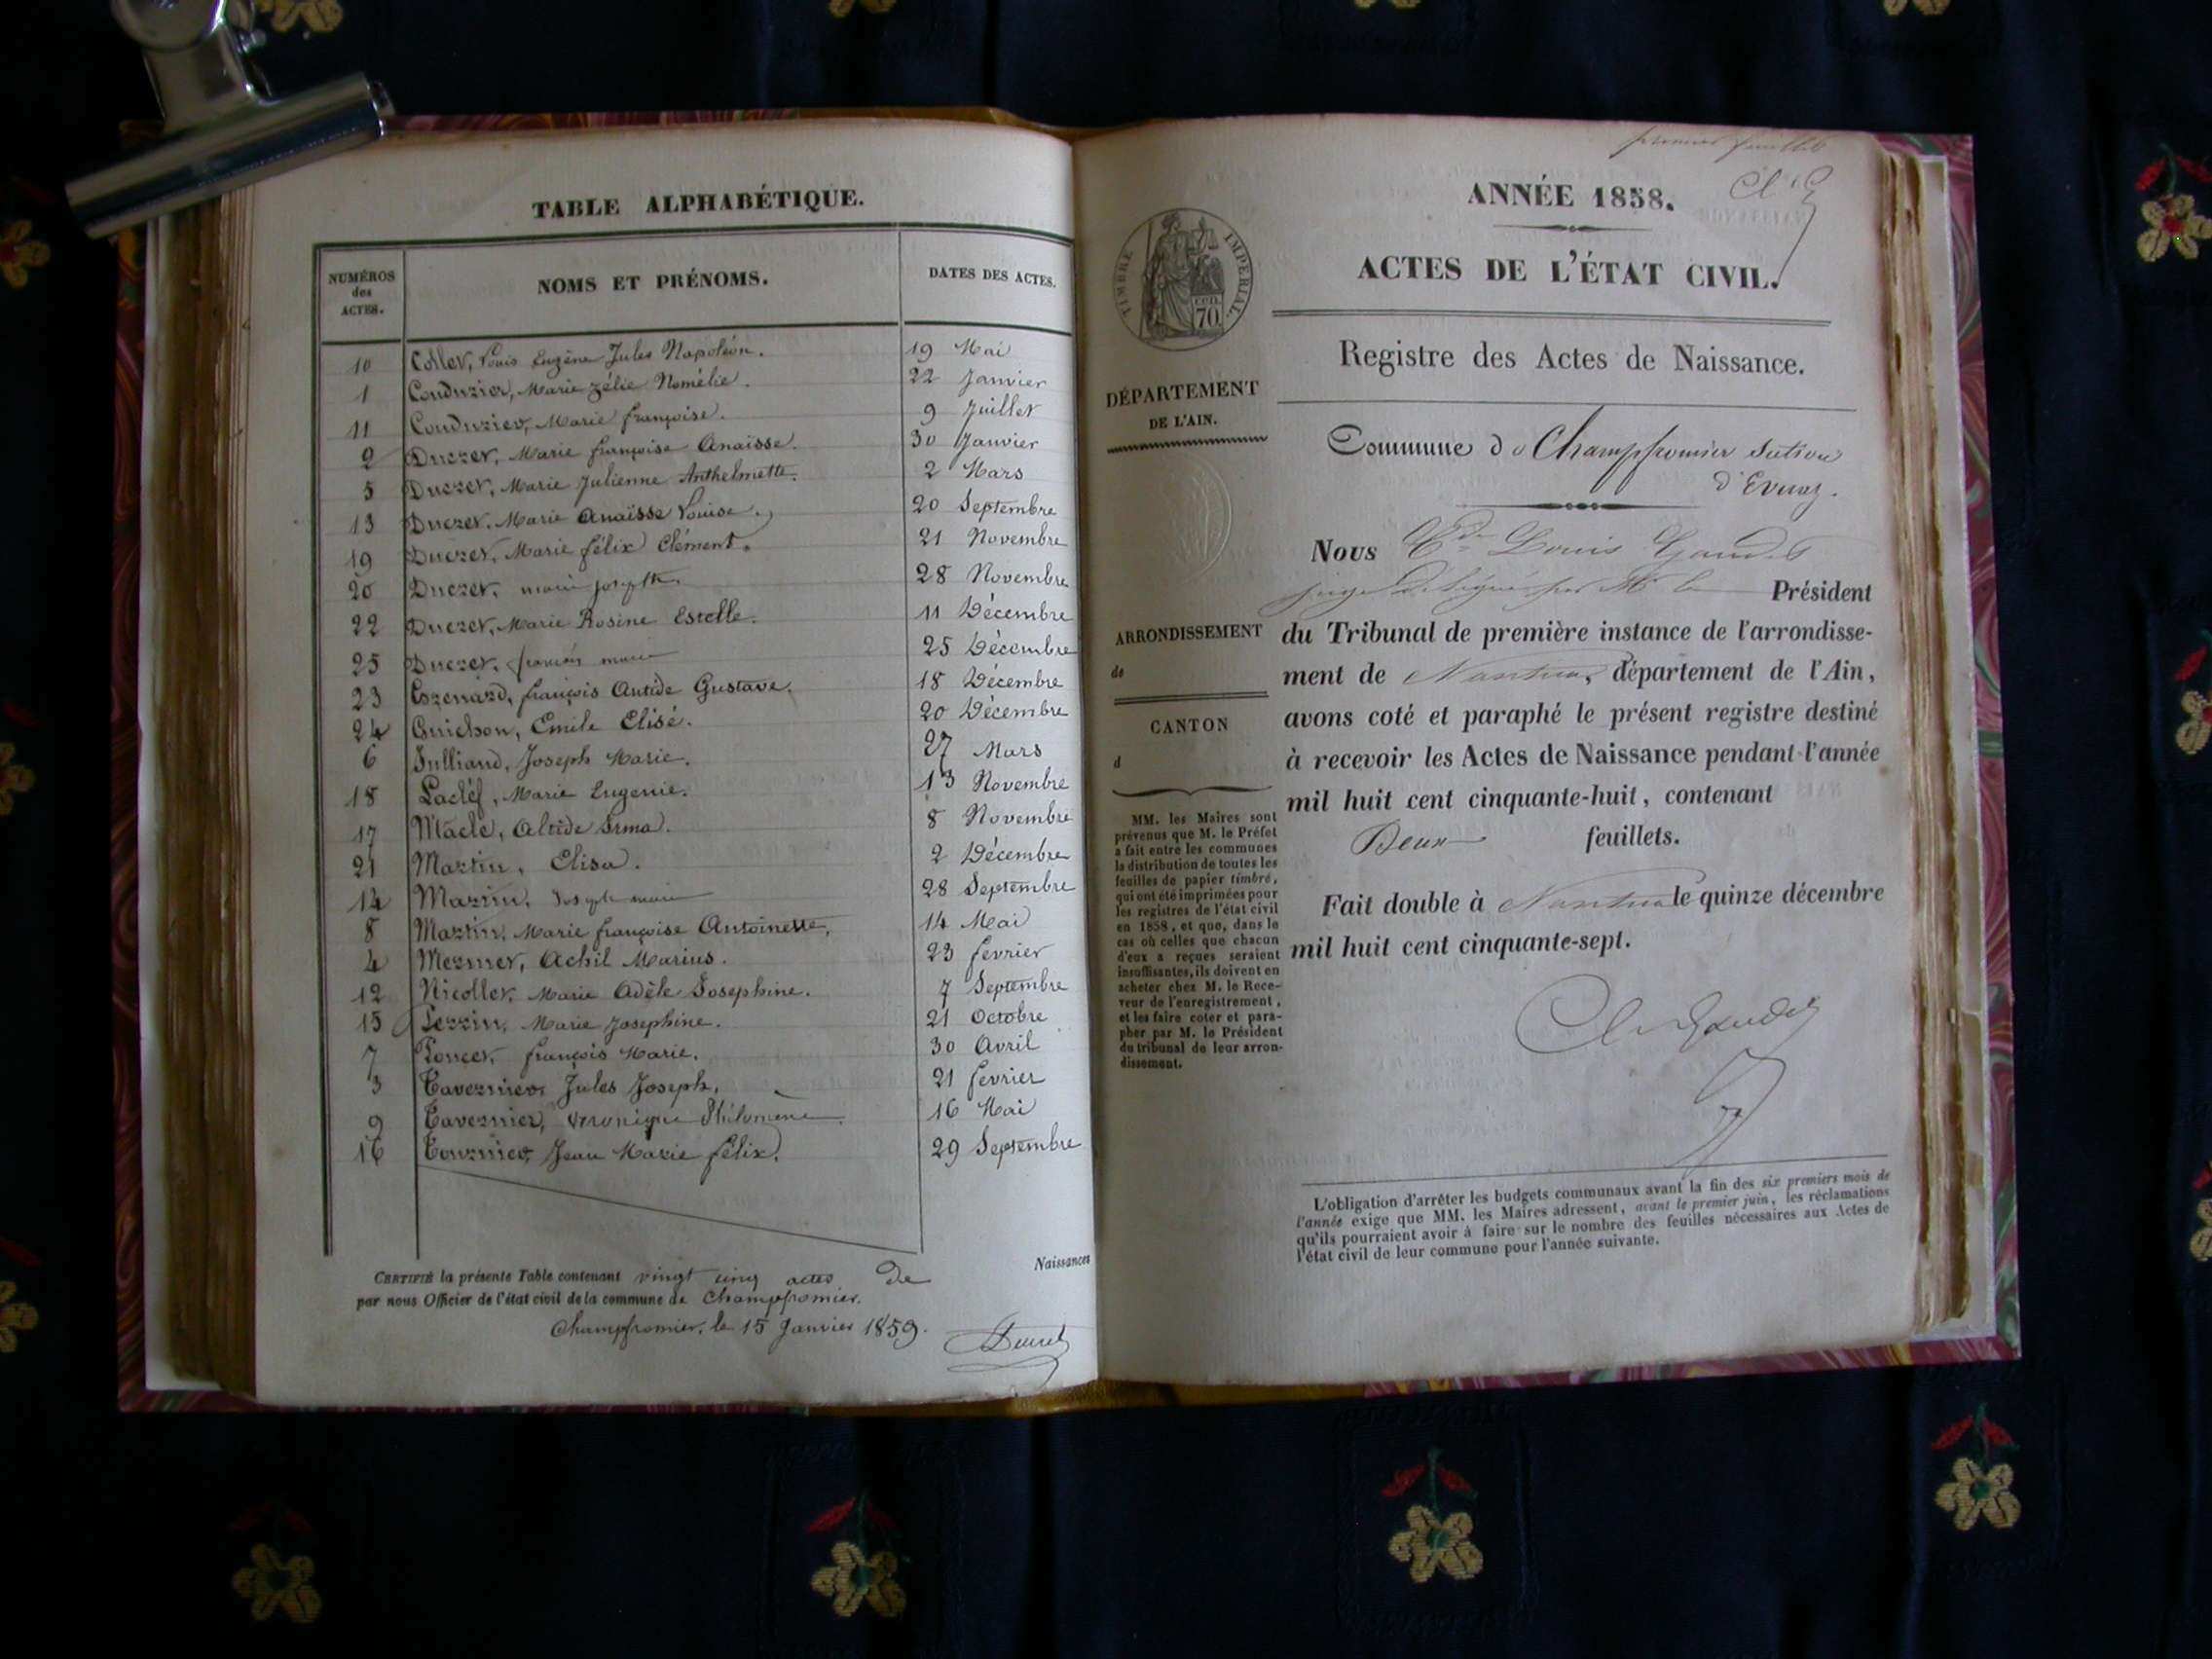 TABLE ALPHABÉTIQUE.
NUMÉROS des ACTES. NOMS ET PRÉNOMS. DATES DES ACTES.
10 Collet, Louis Eugène Jules Napoléon. 19 Mai
1 Coudurier, Marie Zélie Nomélie. 22 Janvier
11 Coudurier, Marie françoise. 9 Juillet
2 Ducret, Marie françoise Anaïsse. 30 Janvier
5 Ducret, Marie Julienne Anthelmette. 2 Mars
13 Ducret, Marie Anaïsse Louise. 20 Septembre
19 Ducret, Marie félix Clément. 21 Novembre
20 Ducret, marie joseph. 28 Novembre
22 Ducret, Marie Rosine Estelle. 11 Décembre
25 Ducret, françois marie 25 Décembre
23 Evrard, françois Antide Gustave. 18 Décembre
24 Guichon, Emile Elisé. 20 Décembre
6 Julliand, Joseph Marie. 27 Mars
18 Marie Eugenie. 13 Novembre
17 Irma. 8 Novembre
21 Martin, Elisa. 2 Décembre
14 Martin, Joseph marie 28 Septembre
8 Martin, Marie françoise Antoinette, 14 Mai
4 Mermet, Achil Marius. 23 fevrier
12 Nicollet, Marie Adèle Josephine. 7 Septembre
15 Perrin, Marie Josephine. 21 Octobre
7 Poncet, françois Marie. 30 Avril
3 Tavernier, Jules Joseph, 21 fevrier
9 Tavernier, Veronique Philomène. 16 Mai
16 Tournier, Jean Marie félix. 29 Septembre
Naissances
CERTIFIÉ la présente Table contenant vingt cinq actes de
par nous Officier de l'état civil de la commune de Champfromier.
Champfromier, le 15 Janvier 1859.
Ducret
premier feuillet
ANNÉE 1858.
ACTES DE L'ÉTAT CIVIL.
TIMBRE IMPÉRIAL.
CEN. 70.
Registre des Actes de Naissance.
DÉPARTEMENT
DE L'AIN.
Commune de Champfromier section
d'Evuaz.
Nous Louis Gaudet
juge délégué par Mr le Président
ARRONDISSEMENT
de
du Tribunal de première instance de l'arrondisse-
ment de Nantua, département de l'Ain,
CANTON
d
avons coté et paraphé le présent registre destiné
à recevoir les Actes de Naissance pendant l'année
mil huit cent cinquante-huit, contenant
Deux feuillets.
Fait double à Nantua le quinze décembre
mil huit cent cinquante-sept.
MM. les Maires sont
prévenus que M. le Préfet
a fait entre les communes
la distribution de toutes les
feuilles de papier timbré,
qui ont été imprimées pour
les registres de l'état civil
en 1858, et que, dans le
cas où celles que chacun
d'eux a reçues seraient
insuffisantes, ils doivent en
acheter chez M. le Rece-
veur de l'enregistrement,
et les faire coter et para-
pher par M. le Président
du tribunal de leur arron-
dissement.
Gaudet
L'obligation d'arrêter les budgets communaux avant la fin des six premiers mois de
l'année exige que MM. les Maires adressent, avant le premier juin, les réclamations
qu'ils pourraient avoir à faire sur le nombre des feuilles nécessaires aux Actes de
l'état civil de leur commune pour l'année suivante.